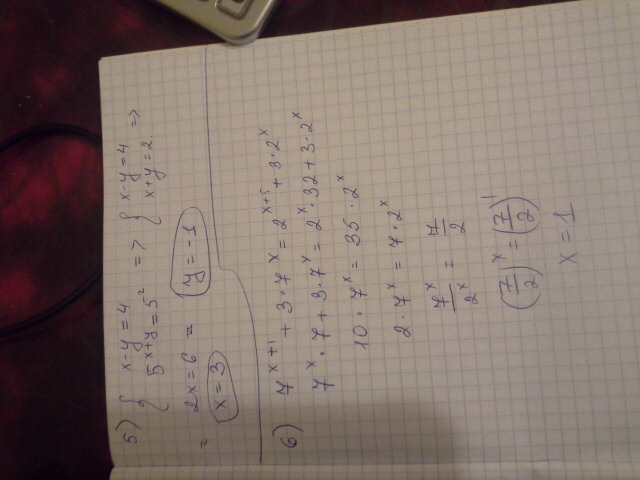 5) { x-y=4
{ 5^(x+y)=5² => { x-y=4
{ x+y=2. =>
= 2x=6 = y=-1
x=3
6) 7^(x+1) + 3·7^x = 2^(x+5) + 3·2^x
7^x·7 + 3·7^x = 2^x·32 + 3·2^x
10·7^x = 35·2^x
2·7^x = 7·2^x
7^x/2^x = 7/2
(7/2)^x = (7/2)^1
x=1